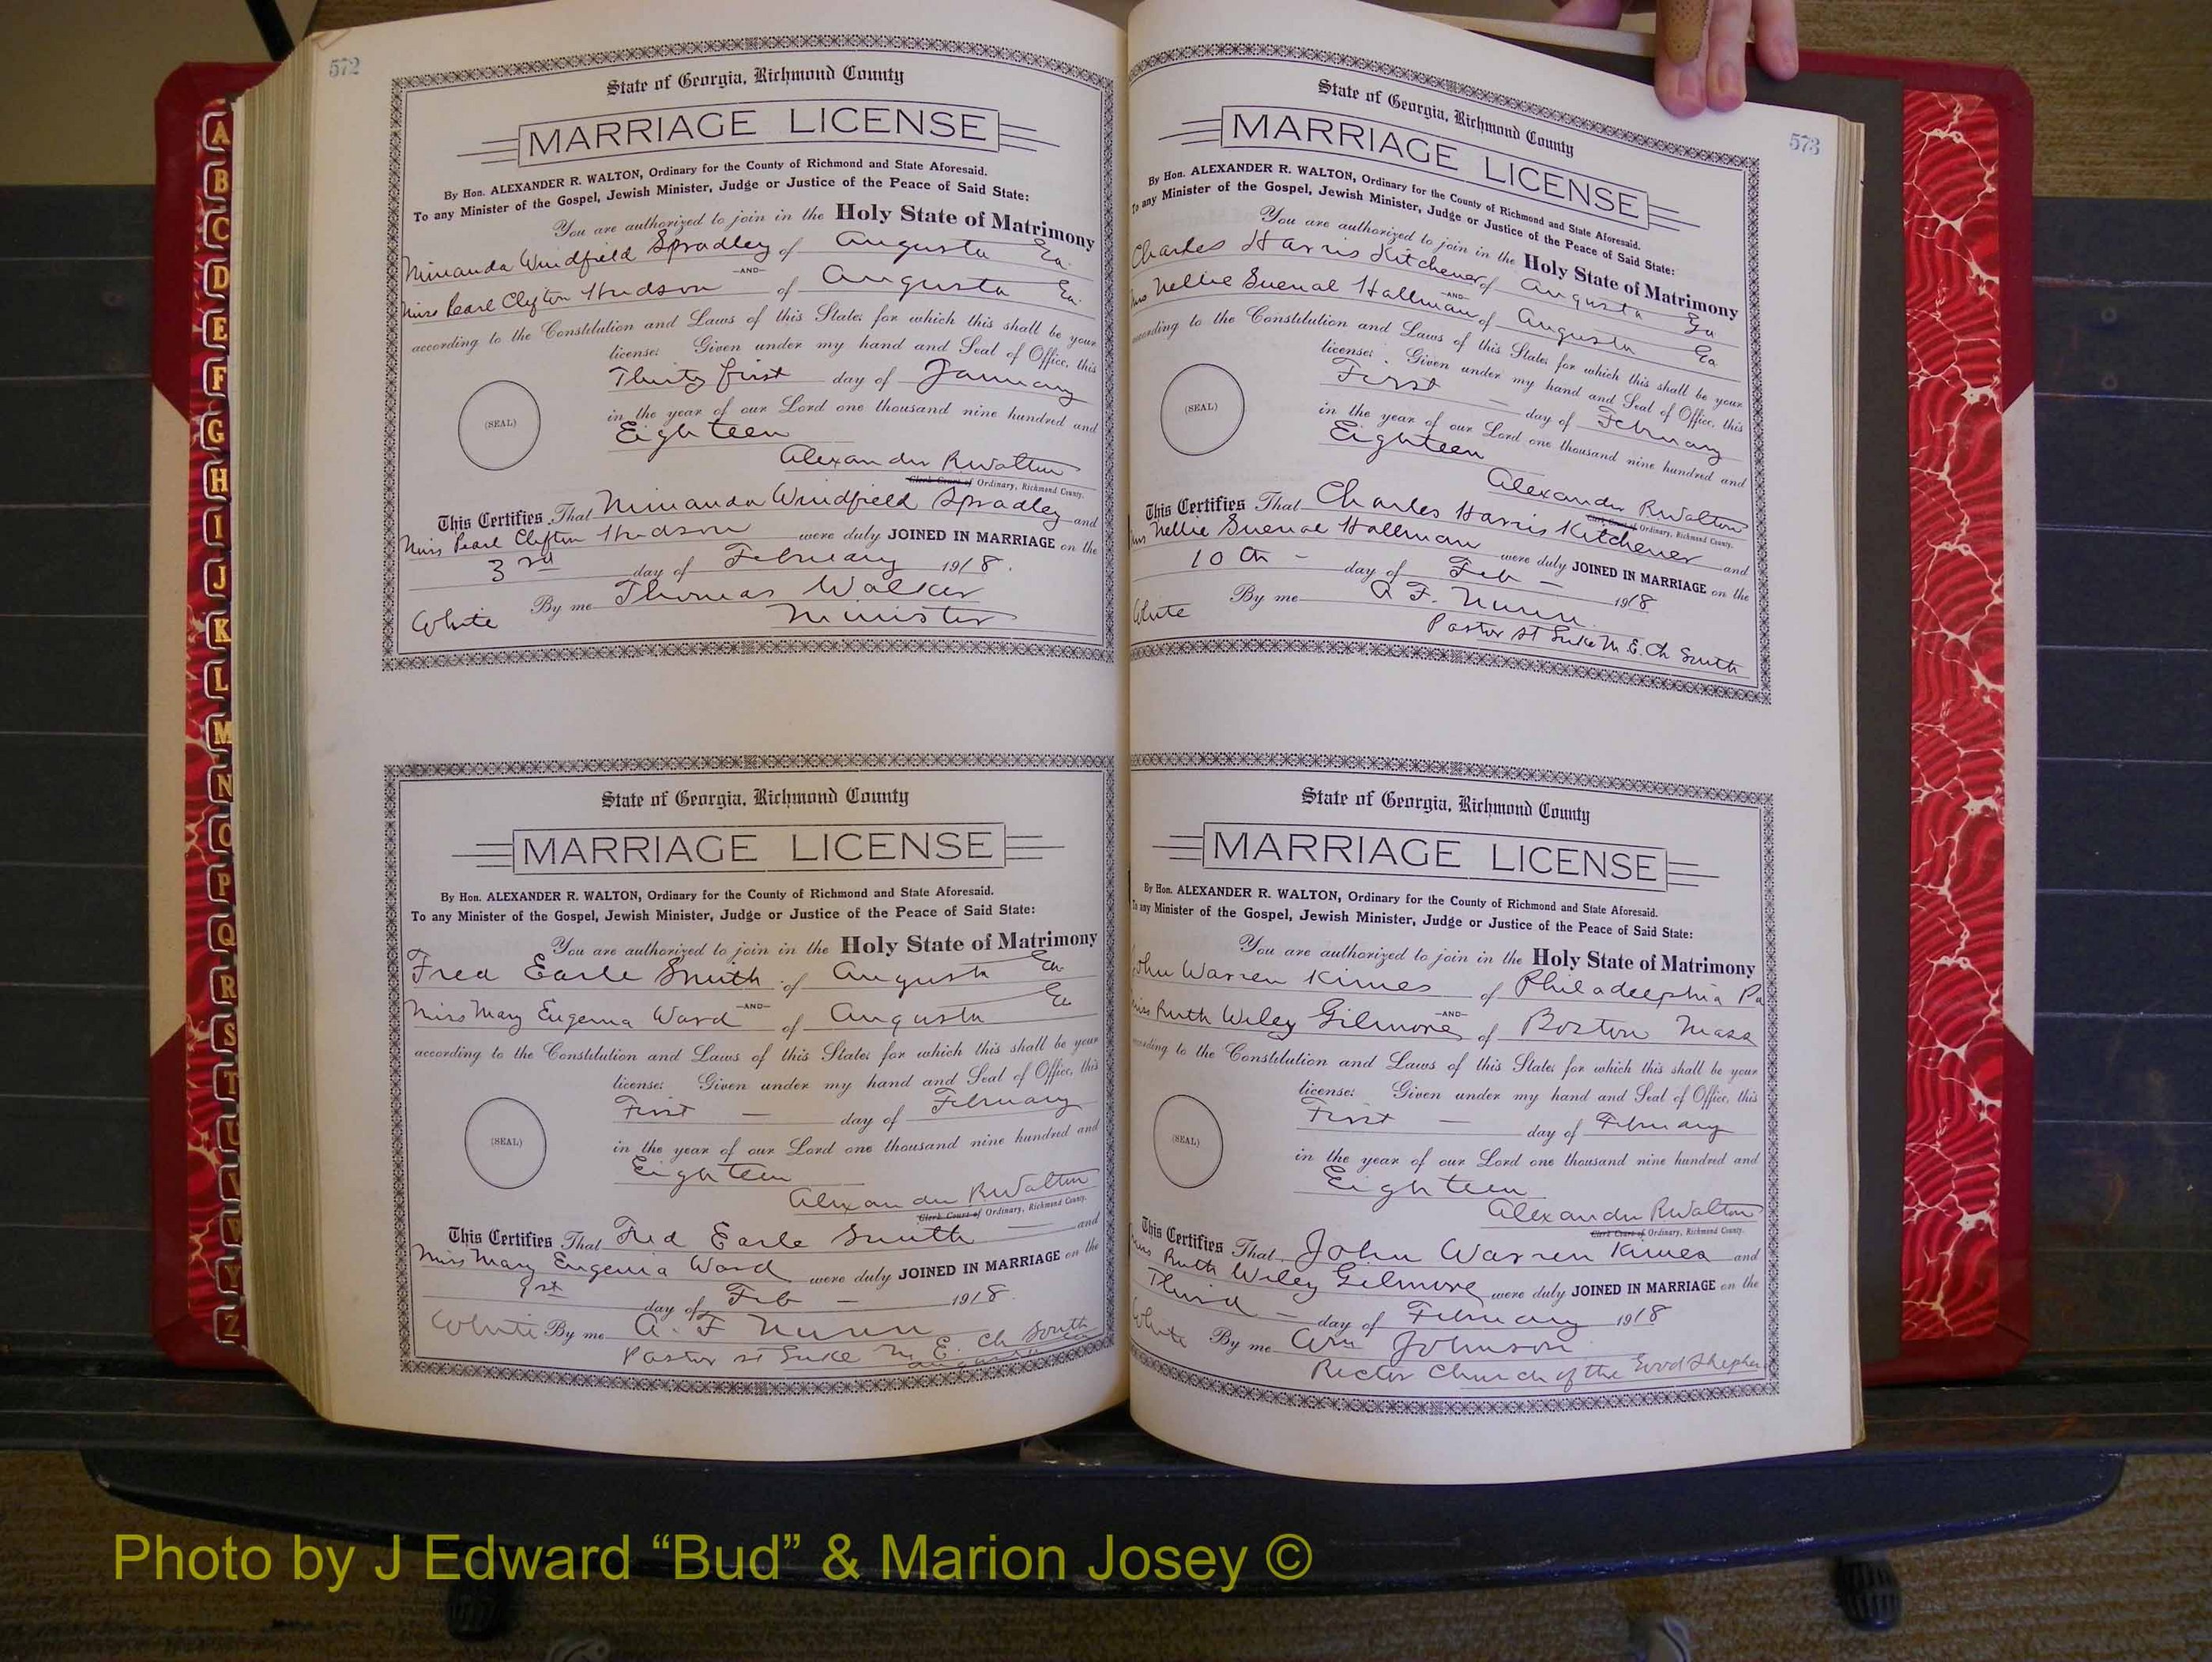 572
State of Georgia, Richmond County
MARRIAGE LICENSE
By Hon. ALEXANDER R. WALTON, Ordinary for the County of Richmond and State Aforesaid.
To any Minister of the Gospel, Jewish Minister, Judge or Justice of the Peace of Said State:
You are authorized to join in the Holy State of Matrimony
Windfield Spradley of Augusta Ga.
—AND—
Miss Pearl Clifton Hudson of Augusta Ga.
according to the Constitution and Laws of this State; for which this shall be your
license: Given under my hand and Seal of Office, this
Thirty first day of January
(SEAL)
in the year of our Lord one thousand nine hundred and
Eighteen
Alexander R Walton
Clerk Court of Ordinary, Richmond County.
This Certifies That Windfield Spradley and
Miss Pearl Clifton Hudson were duly JOINED IN MARRIAGE on the
3rd day of February 1918.
White By me Thomas Walker
Minister
State of Georgia, Richmond County
MARRIAGE LICENSE
By Hon. ALEXANDER R. WALTON, Ordinary for the County of Richmond and State Aforesaid.
To any Minister of the Gospel, Jewish Minister, Judge or Justice of the Peace of Said State:
You are authorized to join in the Holy State of Matrimony
Fred Earle Smith of Augusta Ga.
—AND—
Miss Mary Eugenia Ward of Augusta Ga
according to the Constitution and Laws of this State; for which this shall be your
license: Given under my hand and Seal of Office, this
First — day of February
(SEAL)
in the year of our Lord one thousand nine hundred and
Eighteen
Alexander R Walton
Clerk Court of Ordinary, Richmond County.
This Certifies That Fred Earle Smith and
Miss Mary Eugenia Ward were duly JOINED IN MARRIAGE on the
day of Feb — 1918.
White By me A. F. Nunn
Pastor St Luke M. E. Ch South
Augusta
573
State of Georgia, Richmond County
MARRIAGE LICENSE
By Hon. ALEXANDER R. WALTON, Ordinary for the County of Richmond and State Aforesaid.
To any Minister of the Gospel, Jewish Minister, Judge or Justice of the Peace of Said State:
You are authorized to join in the Holy State of Matrimony
Charles Harris Kitchener of Augusta Ga
—AND—
Nellie Hallman of Augusta Ga
according to the Constitution and Laws of this State; for which this shall be your
license: Given under my hand and Seal of Office, this
First — day of February
(SEAL)
in the year of our Lord one thousand nine hundred and
Eighteen
Alexander R Walton
Clerk Court of Ordinary, Richmond County.
This Certifies That Charles Harris Kitchener and
Nellie Hallman were duly JOINED IN MARRIAGE on the
10th - day of Feb — 1918
White By me A F. Nunn
Pastor St Luke M. E. Ch South
State of Georgia, Richmond County
MARRIAGE LICENSE
By Hon. ALEXANDER R. WALTON, Ordinary for the County of Richmond and State Aforesaid.
To any Minister of the Gospel, Jewish Minister, Judge or Justice of the Peace of Said State:
You are authorized to join in the Holy State of Matrimony
John Warren Kimes of Philadelphia Pa
—AND—
Miss Ruth Wiley Gilmore of Boston Mass
according to the Constitution and Laws of this State; for which this shall be your
license: Given under my hand and Seal of Office, this
First — day of February
(SEAL)
in the year of our Lord one thousand nine hundred and
Eighteen
Alexander R Walton
Clerk Court of Ordinary, Richmond County.
This Certifies That John Warren Kimes and
Miss Ruth Wiley Gilmore were duly JOINED IN MARRIAGE on the
Third — day of February 1918
White By me Wm Johnson
Rector Church of the Good Shepher
A
B
C
D
E
F
G
H
I
J
K
L
M
N
O
P
Q
R
S
T
U
V
W
Y
Z
Photo by J Edward “Bud” & Marion Josey ©